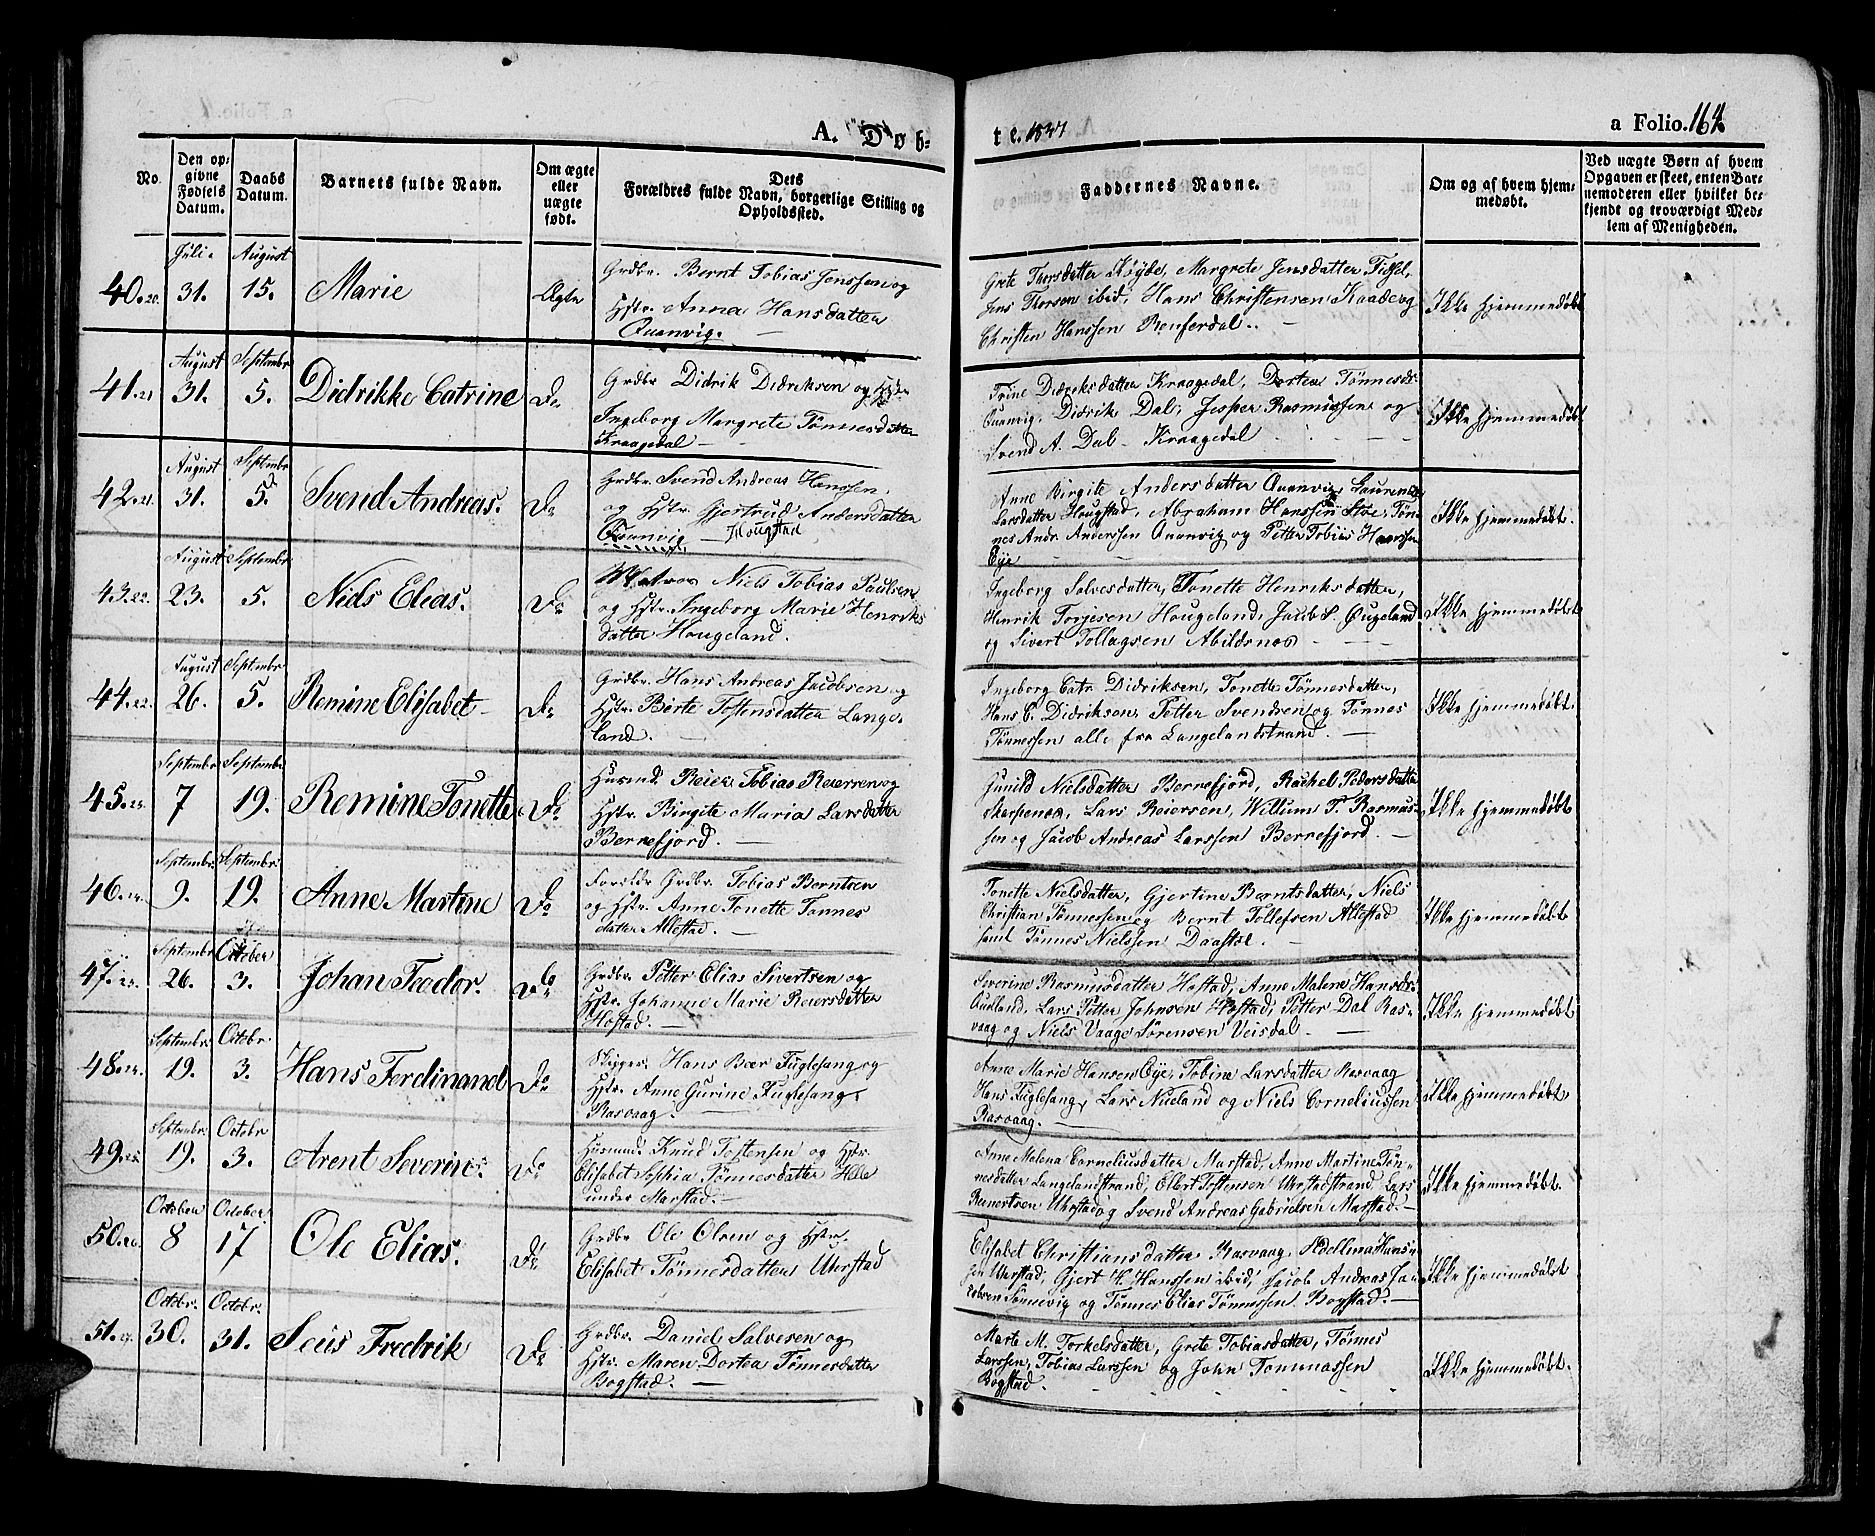 A. Døb-
te. 1837
a Folio. 164
No.
Den op-
givne
Fødsels
Datum.
Daabs
Datum.
Barnets fulde Navn.
Om ægte
eller
uægte
født.
Dets
Forældres fulde Navn, borgerlige Stilling og
Opholdssted.
Faddernes Navne.
Om og af hvem hjem-
medøbt.
Ved uægte Børn af hvem
Opgaven er skeet, enten Bar-
nemoderen eller hvilket be-
kjendt og troværdigt Med-
lem af Menigheden.
40. 20. Juli 31. August 15. Marie Ægte
Grdbr. Bernt Tobias Jenssen og
Hstr. Anna Hansdatter
Quanvig. —
Grete Thorsdatter Køyde, Margrete Jensdatter Fidsel,
Jens Thorsen ibid, Hans Christensen Kaade og
Christen Hanssen Renferdal.. —
Ikke hjemmedøbt
41. 21 August 31. Septembr 5. Didrikke Catrine Do
Grdbr Didrik Didriksen og Hstr
Ingeborg Margrete Tønnesdatter
Kraagedal — —
Trine Didriksdatter Kraagedal, Dortea Tønnesdr
Quanvig, Didrik Dal, Jesper Rasmussen og
Svend A. Dal - Kraagedal
Ikke hjemmedøbt
42. 21. August 31. Septembr 5. Svend Andreas. Do
Grdbr. Svend Andreas Hanssen,
og Hstr. Gjertrud Andersdatter
Quanvig — Hougstad
Anne Birgite Andersdatter Quanvig, Laurense
Larsdatter Hougstad, Abraham Hanssen Stre, Tøn-
nes Andr. Anderssen Quanvig og Petter Tobias Hanssen
Eye
Ikke hjemmedøbt.
43. 22. August 23. Septembr 5. Niels Elias. Do
Matros Niels Tobias Paulsen
og Hstr. Ingeborg Marie Henriks
datter Hougeland.
Ingeborg Salvesdatter, Tonette Henriksdatter,
Henrik Torjesen Hougeland, Jacob S. Øugeland
og Sivert Tollagsen Abildsnes — —
Ikke hjemmedøbt
44. 22. August 26. Septembr 5. Romine Elisabet — Do
Grdbr. Hans Andreas Jacobsen og
Hstr. Berte Tostensdatter Lange-
land. —
Ingeborg Catr. Didriksen, Tonette Tønnesdatter,
Hans C. Didriksen, Petter Svendsen og Tønnes
Tønnessen alle fra Langelandstrand. —
Ikke hjemmedøbt.
45. 23. Septembr 7 Septembr 19. Romine Tonette Do
Husmd. Reier Tobias Reiersen og
Hstr. Birgite Maria Larsdatter
Bernefjord. —
Gunild Nielsdatter Bernefjord, Rachel Pedersdatter
Skarpenes, Lars Reiersen, Willum T. Rasmus-
sen og Jacob Andreas Larssen Bernefjord. —
Ikke hjemmedøbt
46. 24. Septembr. 9. Septembr. 19. Anne Martine Do
Foreldr Grdbr. Tobias Berntsen
og Hstr. Anne Tonette Tønnes
datter Allestad. —
Tonette Nielsdatter, Gjertine Berntsdatter, Niels
Christian Tønnessen og Bernt Tollefsen Allestad
samt Tønnes Nielssen Daastøl. —
Ikke hjemmedøbt
47. Septembr. 26. October 3. Johan Teodor. Do
Grdbr. Petter Elias Sivertsen og
Hstr. Johanne Marie Reiersdatter
Høstad. —
Severine Rasmusdatter Høstad, Anne Malene Hansdr
Audland, Lars Petter Johnsen Høstad, Petter Dal Ras-
vaag og Niels Vaage Sørensen Veisdal. —
Ikke hjemmedøbt
48. 24. Septembr. 19. Octobr. 3. Hans Ferdinand Do
Skipper Hans Boer Fuglesang og
Hstr. Anne Gurine Fuglesang,
Rasvaag. —
Anne Marie Hansen Eye, Tobine Larsdatter Rasvaag
Hans Fuglesang, Lars Nueland og Niels Corneliussen
Rasvaag. —
Ikke hjemmedøbt,
49. 25 Septembr: 19. Octobr 3. Arent Severin. Do
Husmd. Knud Tostensen og Hstr.
Elisabet Sophia Tønnesdatter Helle
under Marstad. —
Anne Malena Corneliusdatter Marstad, Anne Martine Tøn-
nesdatter Langelandstrand, Ellert Tostensen Uhrstadstrand Lars
Berentsen Uhrstad og Svend Andreas Gabrielsen Marstad. —
Ikke hjemmedøbt.
50. 26. October 8 October. 17 Ole Elias. Do
Grdbr Ole Olsen og Hstr.
Elisabet Tønnesdatter Uhrstad
Elisabet Christiansdatter Rasvaag, Adellina Hans-
sen Uhrstad, Gjert H. Hanssen ibid, Jacob Andreas Ja-
cobsen Sønnevig og Tønnes Elias Tønnessen Bogstad. —
Ikke hjemmedøbt
51. 27. Octobr. 30. Octobr. 31. Seüs Fredrik Do
Grdbr. Daniel Salvesen og
Hstr. Maren Dortea Tønnesdatter
Bogstad. —
Marte M. Torkelsdatter, Grete Tobiasdatter, Tønnes
Larssen, Tobias Larssen og John Tommassen
Bogstad.
Ikke hjemmedøbt.